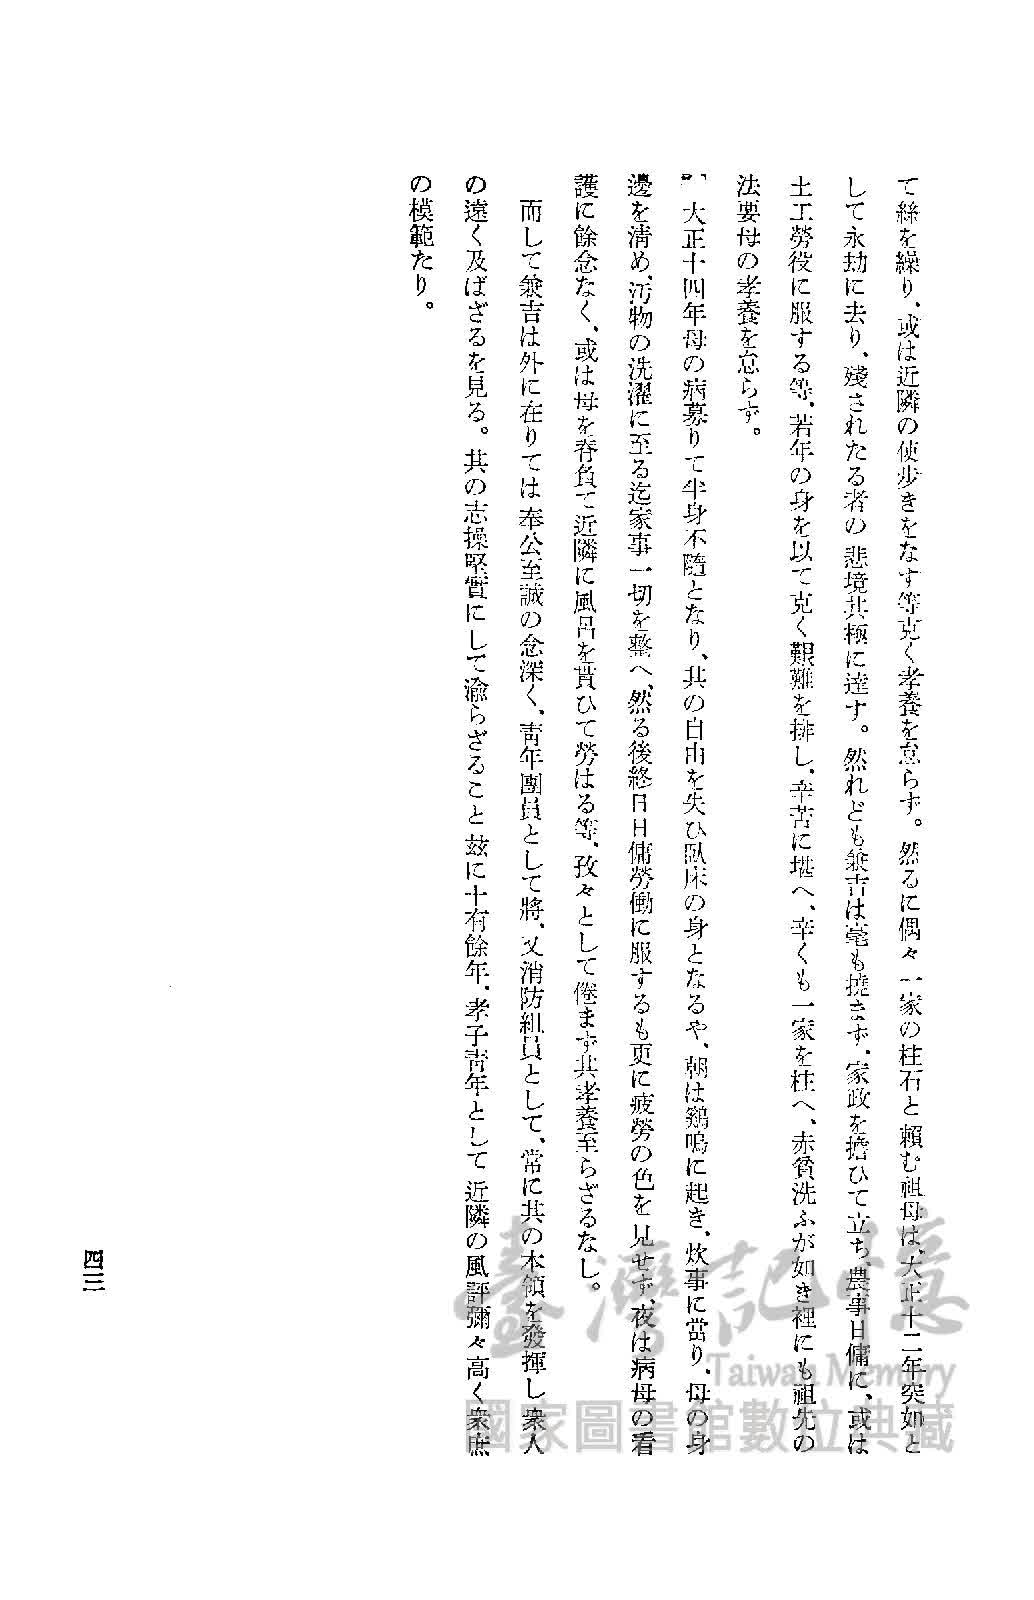 て絲を繰り、或は近隣の使步きをなす等克く孝養を怠らず。然るに偶々一家の柱石と賴む祖母は、大正十二年突如と
して永劫に去り、殘されたる者の悲境其極に達す。然れども兼吉は毫も撓まず、家政を擔ひて立ち、農事日傭に、或は
土工勞役に服する等、若年の身を以て克く艱難を排し、辛苦に堪へ、辛くも一家を柱へ、赤貧洗ふが如き裡にも祖先の
法要母の孝養を怠らず。
大正十四年母の病募りて半身不隨となり、其の自由を失ひ臥床の身となるや、朝は鷄鳴に起き、炊事に當り、母の身
邊を淸め、汚物の洗濯に至る迄家事一切を整へ、然る後終日日傭勞働に服するも更に疲勞の色を見せず、夜は病母の看
護に餘念なく、或は母を脊負て近隣に風呂を貰ひて勞はる等、孜々として倦まず其孝養至らざるなし。
而して兼吉は外に在りては奉公至誠の念深く、靑年團員として將、又消防組員として、常に其の本領を發揮し衆人
の遠く及ばざるを見る。其の志操堅實にして渝らざること玆に十有餘年、孝子靑年として近隣の風評彌々高く衆庶
の模範たり。
四三
臺灣記憶
Taiwan Memory
國家圖書館數位典藏